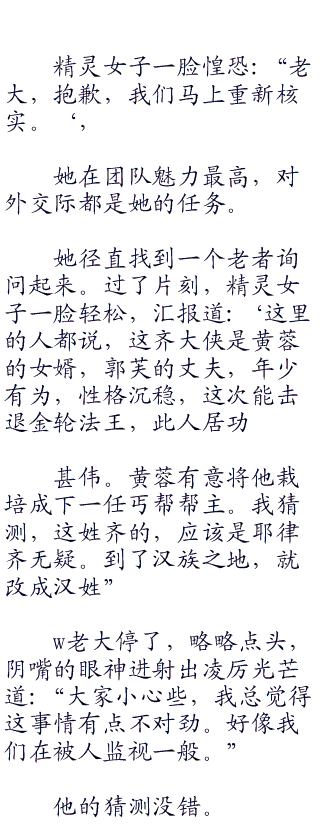 精灵女子一脸惶恐：“老
大，抱歉，我们马上重新核
实。‘，
她在团队魅力最高，对
外交际都是她的任务。
她径直找到一个老者询
问起来。过了片刻，精灵女
子一脸轻松，汇报道：‘这里
的人都说，这齐大侠是黄蓉
的女婿，郭芙的丈夫，年少
有为，性格沉稳，这次能击
退金轮法王，此人居功
甚伟。黄蓉有意将他栽
培成下一任丐帮帮主。我猜
测，这姓齐的，应该是耶律
齐无疑。到了汉族之地，就
改成汉姓”
w老大停了，略略点头，
阴嘴的眼神迸射出凌厉光芒
道：“大家小心些，我总觉得
这事情有点不对劲。好像我
们在被人监视一般。”
他的猜测没错。